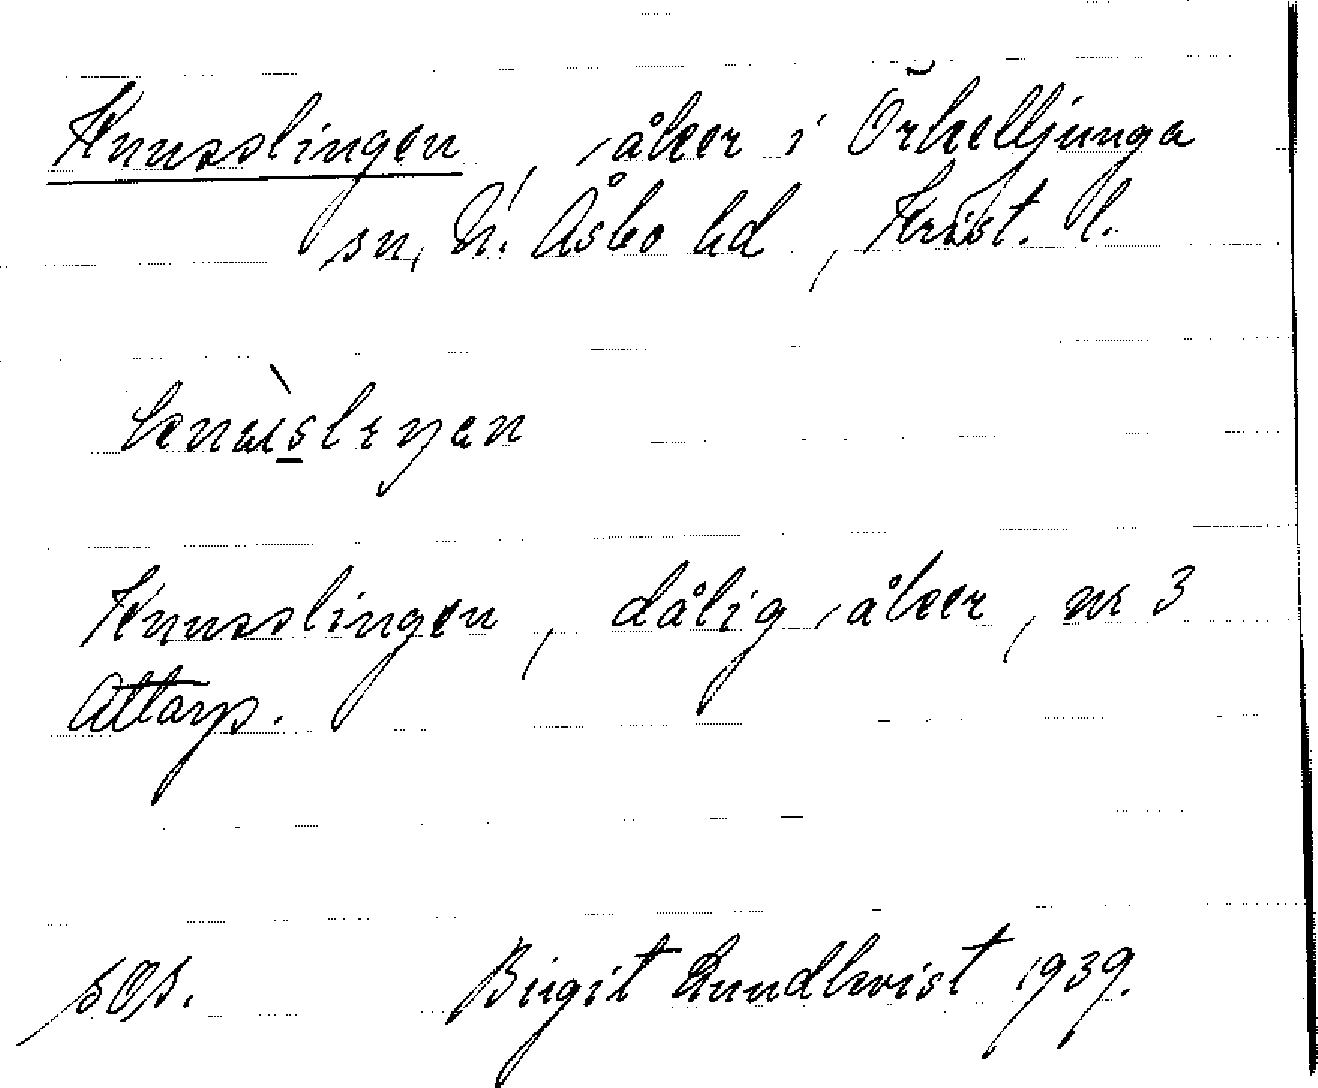 Knusslingen, åker i Örkelljunga
sn, N. Åsbo hd, Krist. l.
Knusslingen, dålig åker, nr 3
Attarp.
sOs. Birgit Lundkvist 1939.